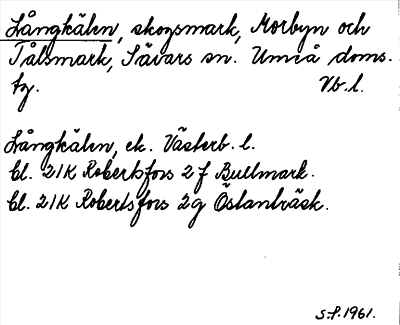 Långkälen, skogsmark, Morbyn och
Tålsmark, Sävars sn. Umeå doms.
tg. Vb.l.
Långkälen, ek. Västerb. l.
bl. 21K Robertsfors 2f Bullmark.
bl. 21K Robertsfors 2g Östanbräsk.
S.f. 1961.